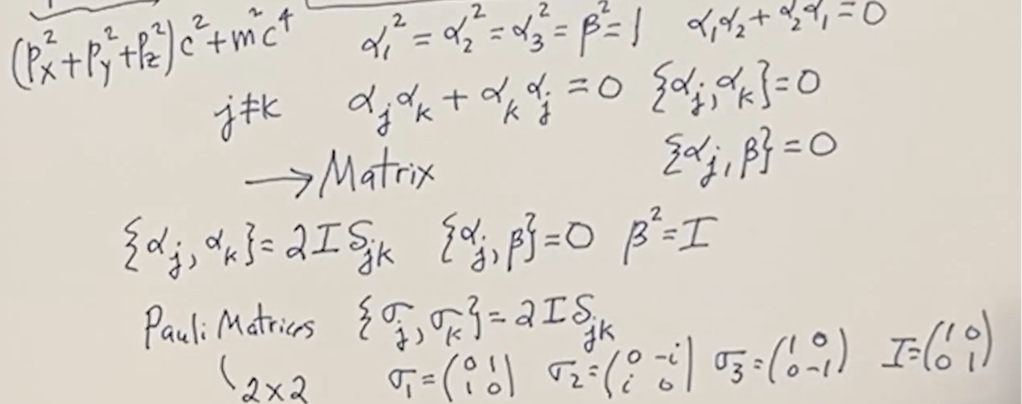 (Px²+Py²+Pz²)c²+m²c⁴ α₁²=α₂²=α₃²=β²=1 α₁α₂+α₂α₁=0
j≠k αⱼαₖ+αₖαⱼ=0 {αⱼ,αₖ}=0
→Matrix {αⱼ,β}=0
{αⱼ,αₖ}=2Iδⱼₖ {αⱼ,β}=0 β²=I
Pauli Matrices {σⱼ,σₖ}=2Iδⱼₖ
2x2 σ₁=(0 1; 1 0) σ₂=(0 -i; i 0) σ₃=(1 0; 0 -1) I=(1 0; 0 1)